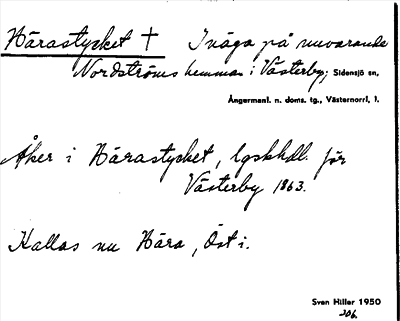 Närastycket † Inäga på nuvarande
Nordströms hemman i Västerby; Sidensjö sn,
Ångermanl. n. doms. tg., Västernorrl, l.
Åker i Närastycket, lgskhdl. för
Västerby 1863.
Kallas nu Nära, Öst i.
Sven Hiller 1950
206.